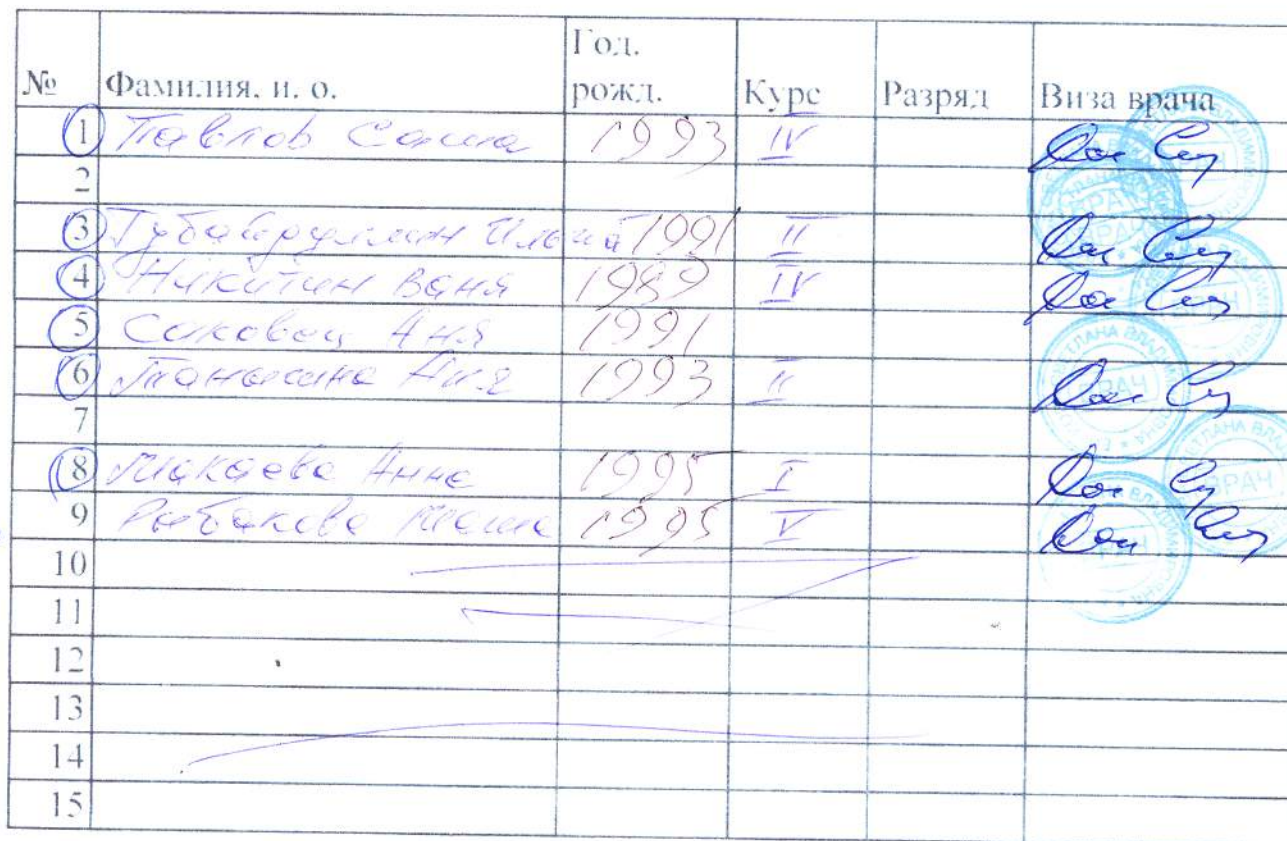 № Фамилия, и. о. Год. рожд. Курс Разряд Виза врача
1 Павлов Саша 1993 IV
2
3 Губайдуллин Ильдар 1991 II
4 Никитин Ваня 1989 IV
5 Соковец Аня 1991
6 Аня 1993 II
7
8 Макаева Анна 1995 I
9 Рыбакова Маша 1995 V
10
11
12
13
14
15
ВРАЧ